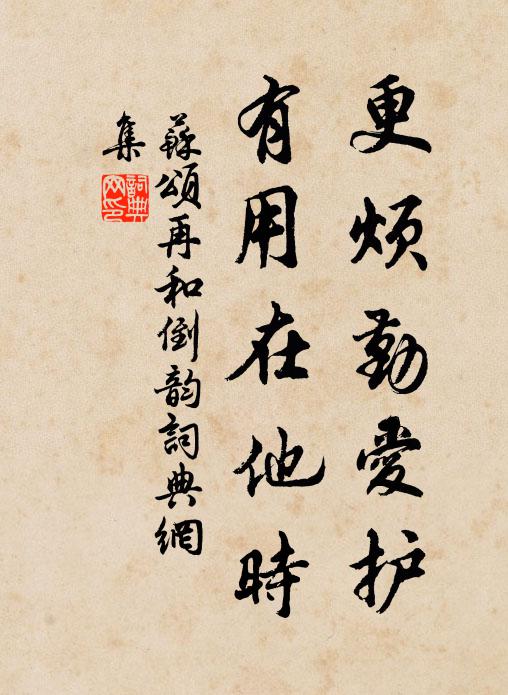 更烦勤愛护
有用在他時
蘇頌再和倒韵詞典網
集
詞典
网印